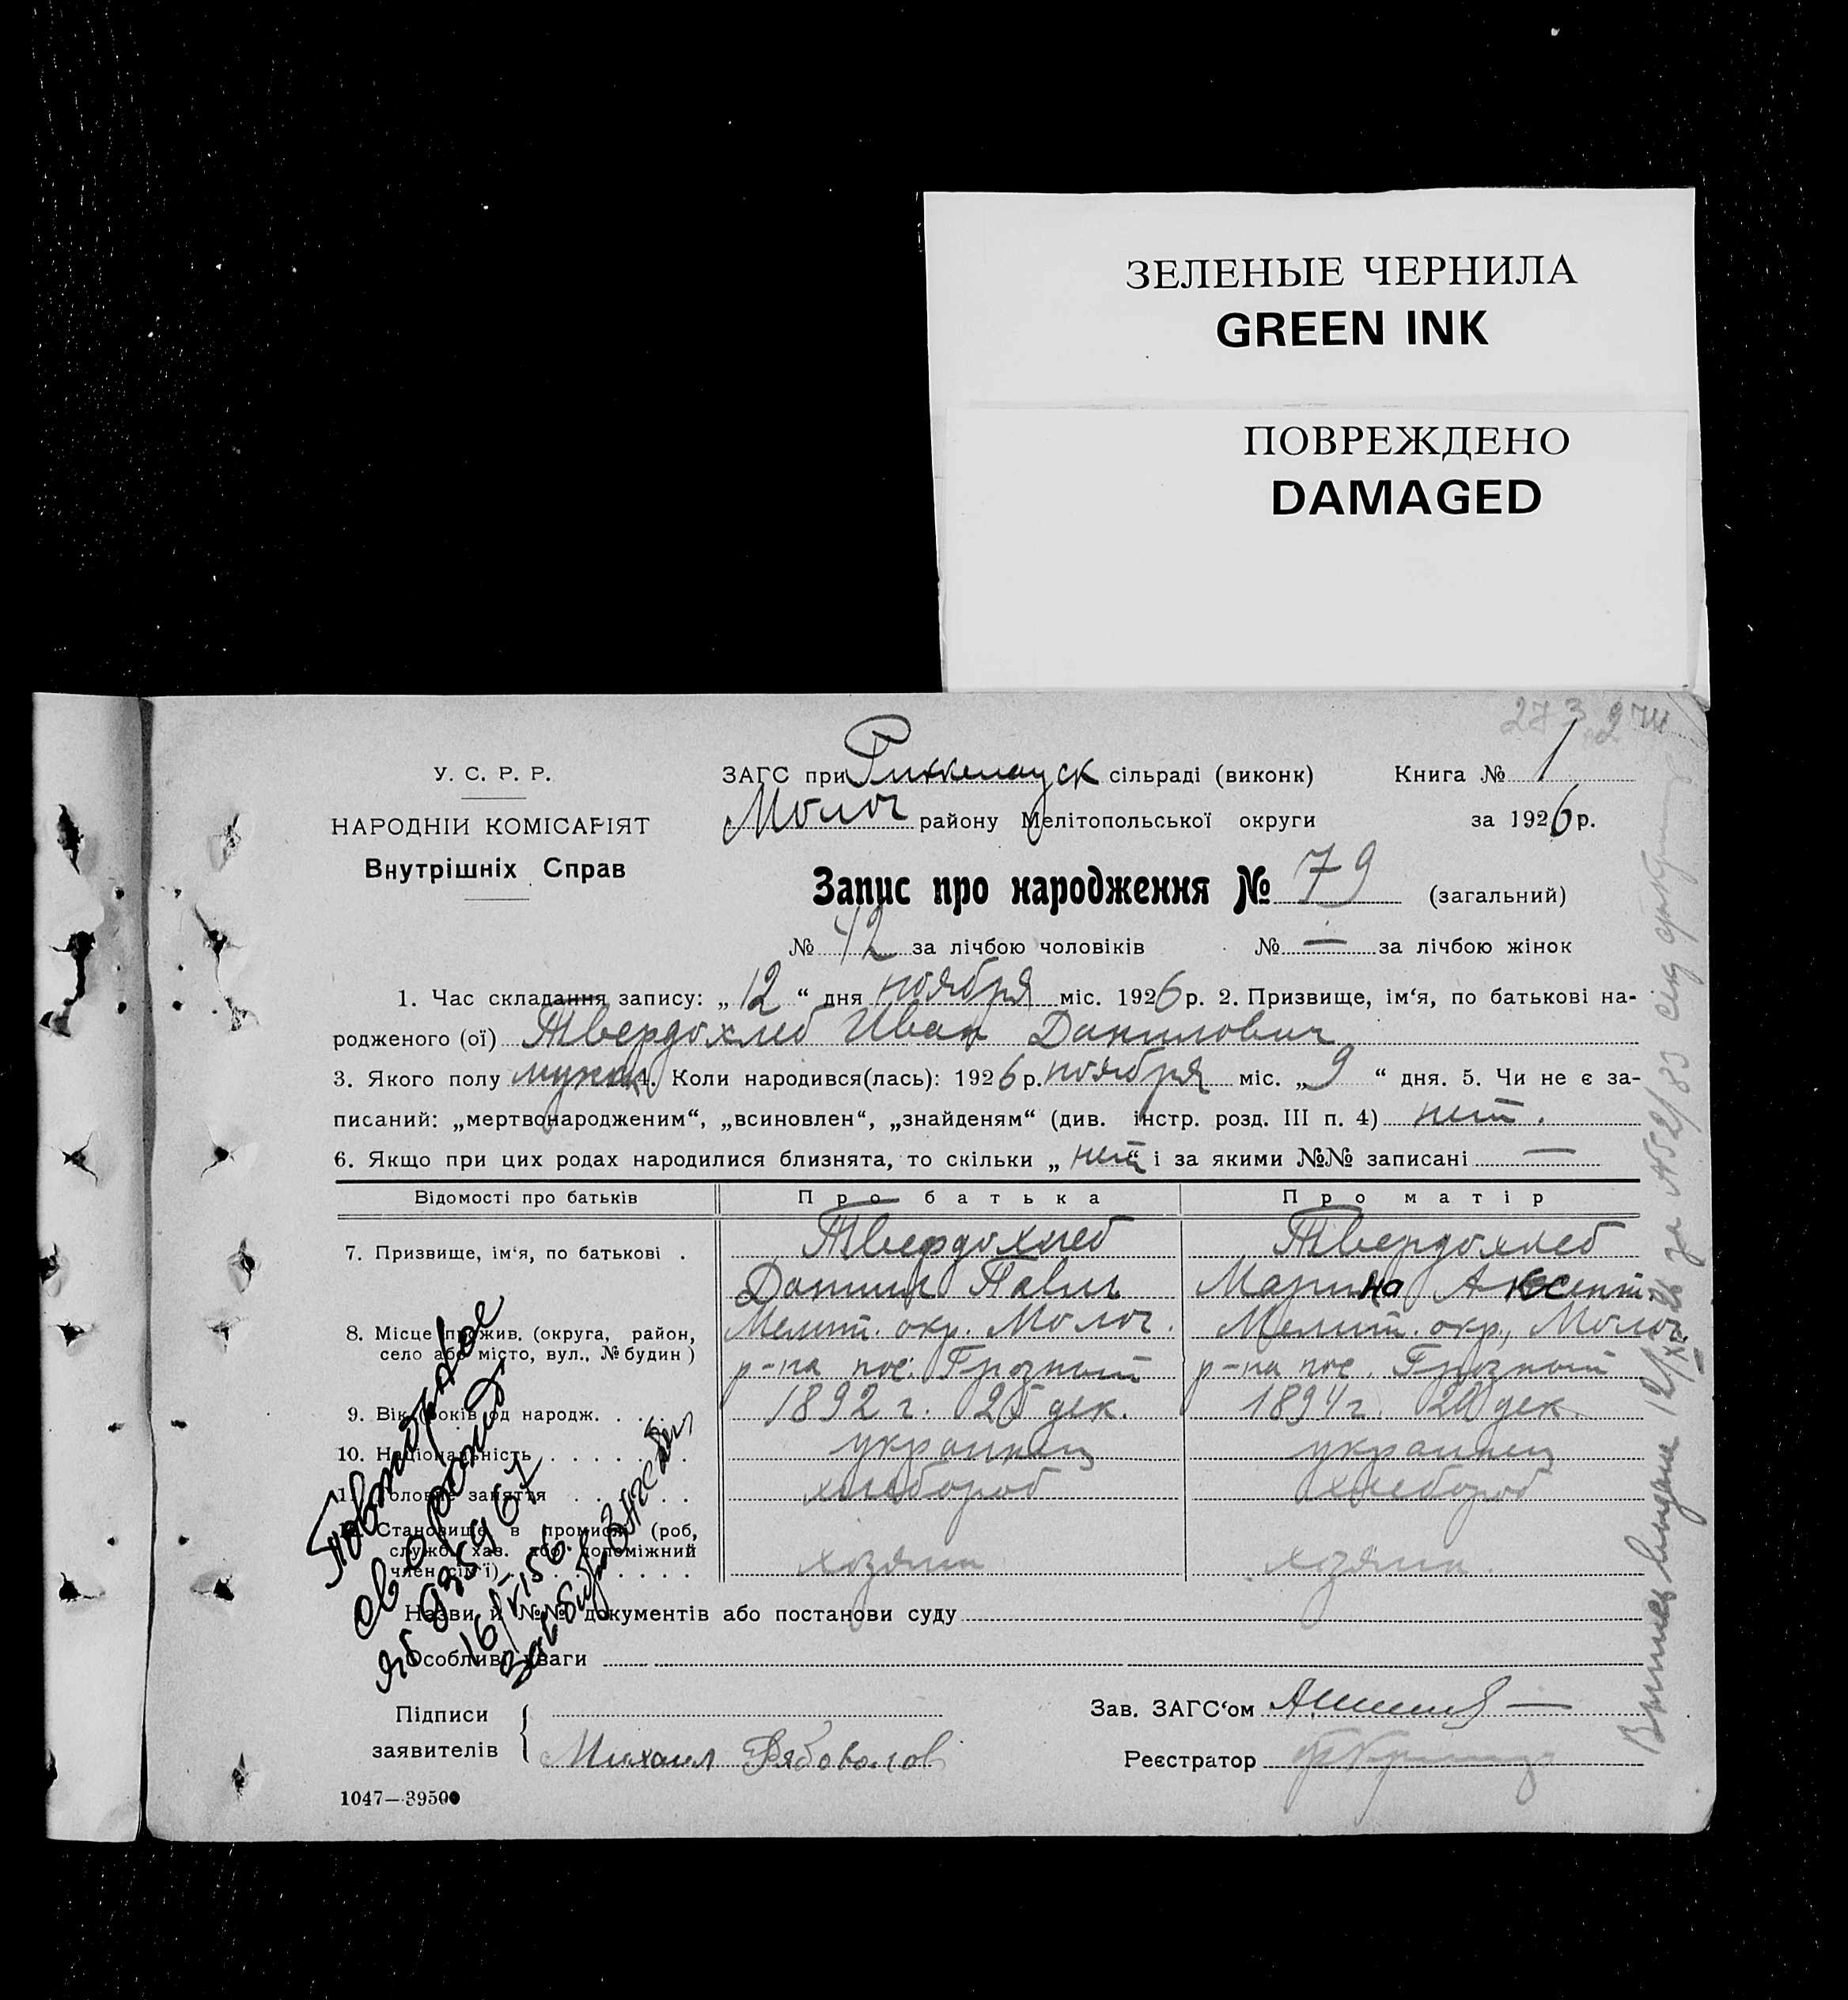 ЗЕЛЕНЫЕ ЧЕРНИЛА
GREEN INK
ПОВРЕЖДЕНО
DAMAGED
273
У. С. Р. Р.
НАРОДНІЙ КОМІСАРІЯТ
Внутрішніх Справ
ЗАГС при Риккенауск сільраді (виконк) Книга № 1
Молоч району Мелітопольської округи за 1926 р.
Запис про народження № 79 (загальний)
№ 42 за лічбою чоловіків № — за лічбою жінок
1. Час складання запису: „12“ дня ноября міс. 1926 р. 2. Призвище, ім‘я, по батькові на-
родженого (ої) Твердохлеб Иван Данилович
3. Якого полу мужск 4. Коли народився(лась): 1926 р. ноября міс. „9“ дня. 5. Чи не є за-
писаний: „мертвонародженим“, „всиновлен“, „знайденям“ (див. інстр. розд. III п. 4) нет.
6. Якщо при цих родах народилися близнята, то скільки „нет“ і за якими №№ записані —
Відомості про батьків Про батька Про матір
7. Призвище, ім‘я, по батькові . Твердохлеб Твердохлеб
Данил Павл Марина Авксент.
8. Місце прожив. (округа, район, Мелит. окр. Молоч. Мелит. окр., Молоч.
село або місто, вул., № будин) р-на пос. Грозный р-на пос. Грозный
9. Вік (років од народж. . . . . 1892 г. 25 дек. 1894 г. 20 дек.
10. Національність . . . . . . . украинец украинец
11. Головне заняття . . . . . . хлебороб хлебороб
12. Становище в промислі (роб,
служб. хаз. або допоміжний
член сім‘ї) . . . . . . . . . . хозяин хозяин.
Назви й №№ документів або постанови суду
Особливі уваги
Підписи
заявителів Михаил Рябовалов
Зав. ЗАГС‘ом
Реєстратор
1047—39500
Повторное
св о рожд
16/V-156.
Зав бюро ЗАГС
Выпись выдана 12/XI 26 за № 52/83